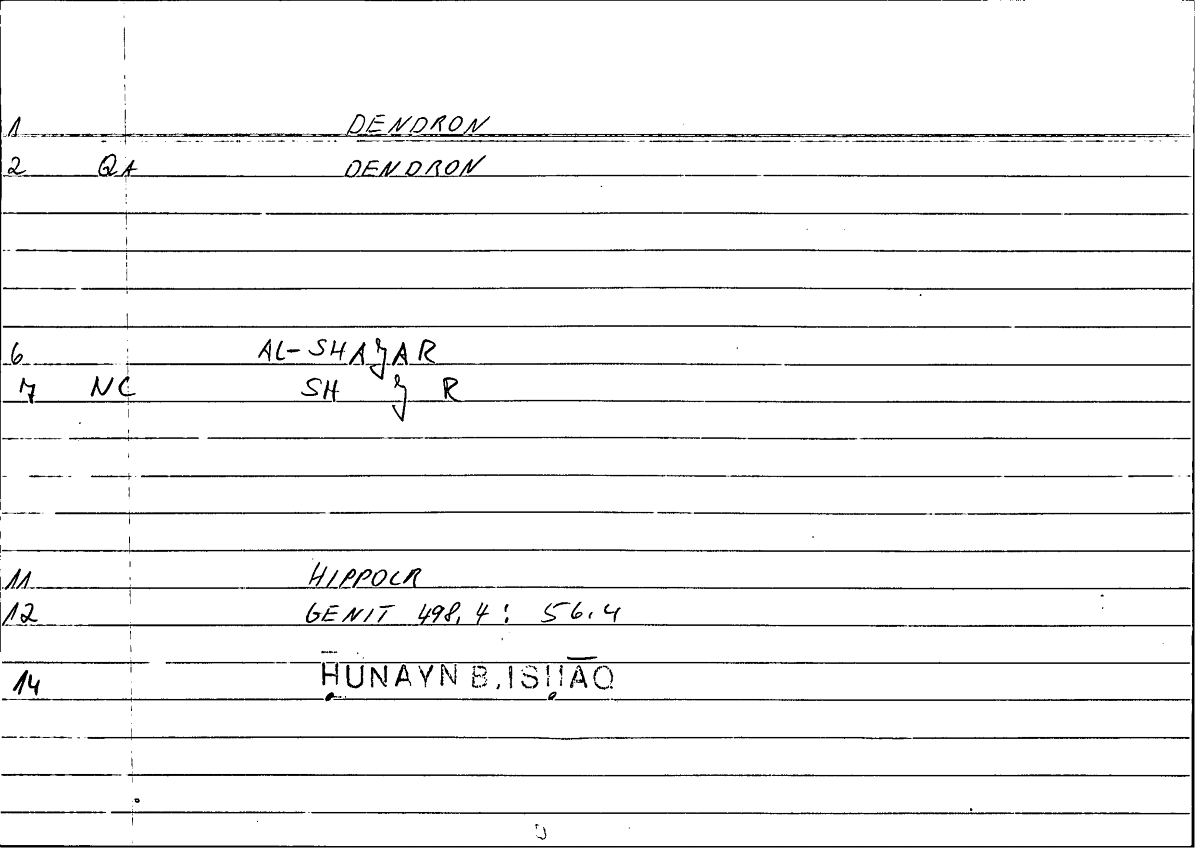 1 DENDRON
2 QA DENDRON
6 AL-SHAJAR
7 NC SH J R
11 HIPPOCR
12 GENIT 498,4 : 56,4
14 ḤUNAYN B. ISḤĀQ